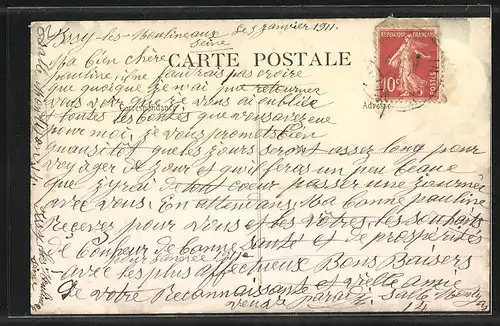 Issy-les-Moulineaux le 5 janvier 1911.
Seine
CARTE POSTALE
REPUBLIQUE FRANÇAISE
10
POSTES
Correspondance
Adresse
Ma bien chère
pauline, il ne faudrais pas croire
que quoique je n'ai pue retourner
vous voir que je vous ai oubliée
et toutes les bontés que vous avez eue
pour moi, je vous promets bien
quausitôt que les jours seront assez long pour
voyager de jour et qu'il feras un peu beaue
que j'yrai de tout coeur passer une journée
avec vous. En attendans, Ma bonne pauline
Recever pour vous et les vôtres les souhaits
de Bonheur de bonne santé et de prospérités
pour l'année 1911
avec les plus affectueux Bons Baisers
de votre Reconnaissante et vielle amie